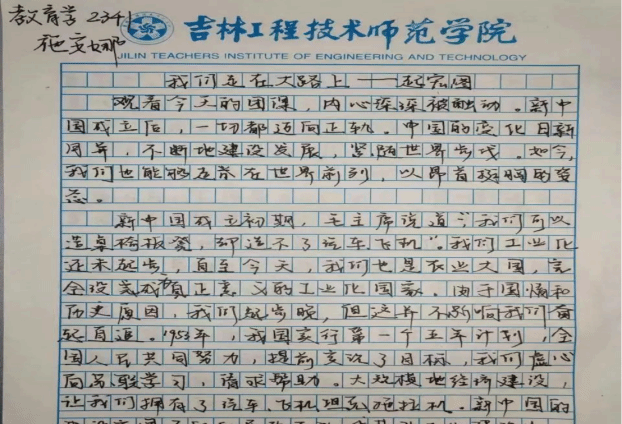 教育学2341
施安娜
吉林工程技术师范学院
JILIN TEACHERS INSTITUTE OF ENGINEERING AND TECHNOLOGY
我们走在大路上——起宏图
观看今天的团课，内心深深被触动。新中
国成立后，一切都迈向正轨。中国的变化日新
月异，不断地建设发展，紧随世界步伐。如今，
我们也能够屹立在世界前列，以昂首挺胸的姿
态。
新中国成立初期，毛主席说道："我们可以
造桌椅板凳，却造不了汽车飞机"。我们工业化
还未起步，直至今天，我们也是农业大国，完
全没发展成真正意义的工业化国家。由于国情和
历史原因，我们起步晚，但这并不影响我们奋
起直追。1953年，我国实行第一个五年计划，全
国人民共同努力，提前实现了目标，我们虚心
向苏联学习，请求帮助。大规模地经济建设，
让我们拥有了汽车、飞机坦克拖拉机。新中国的